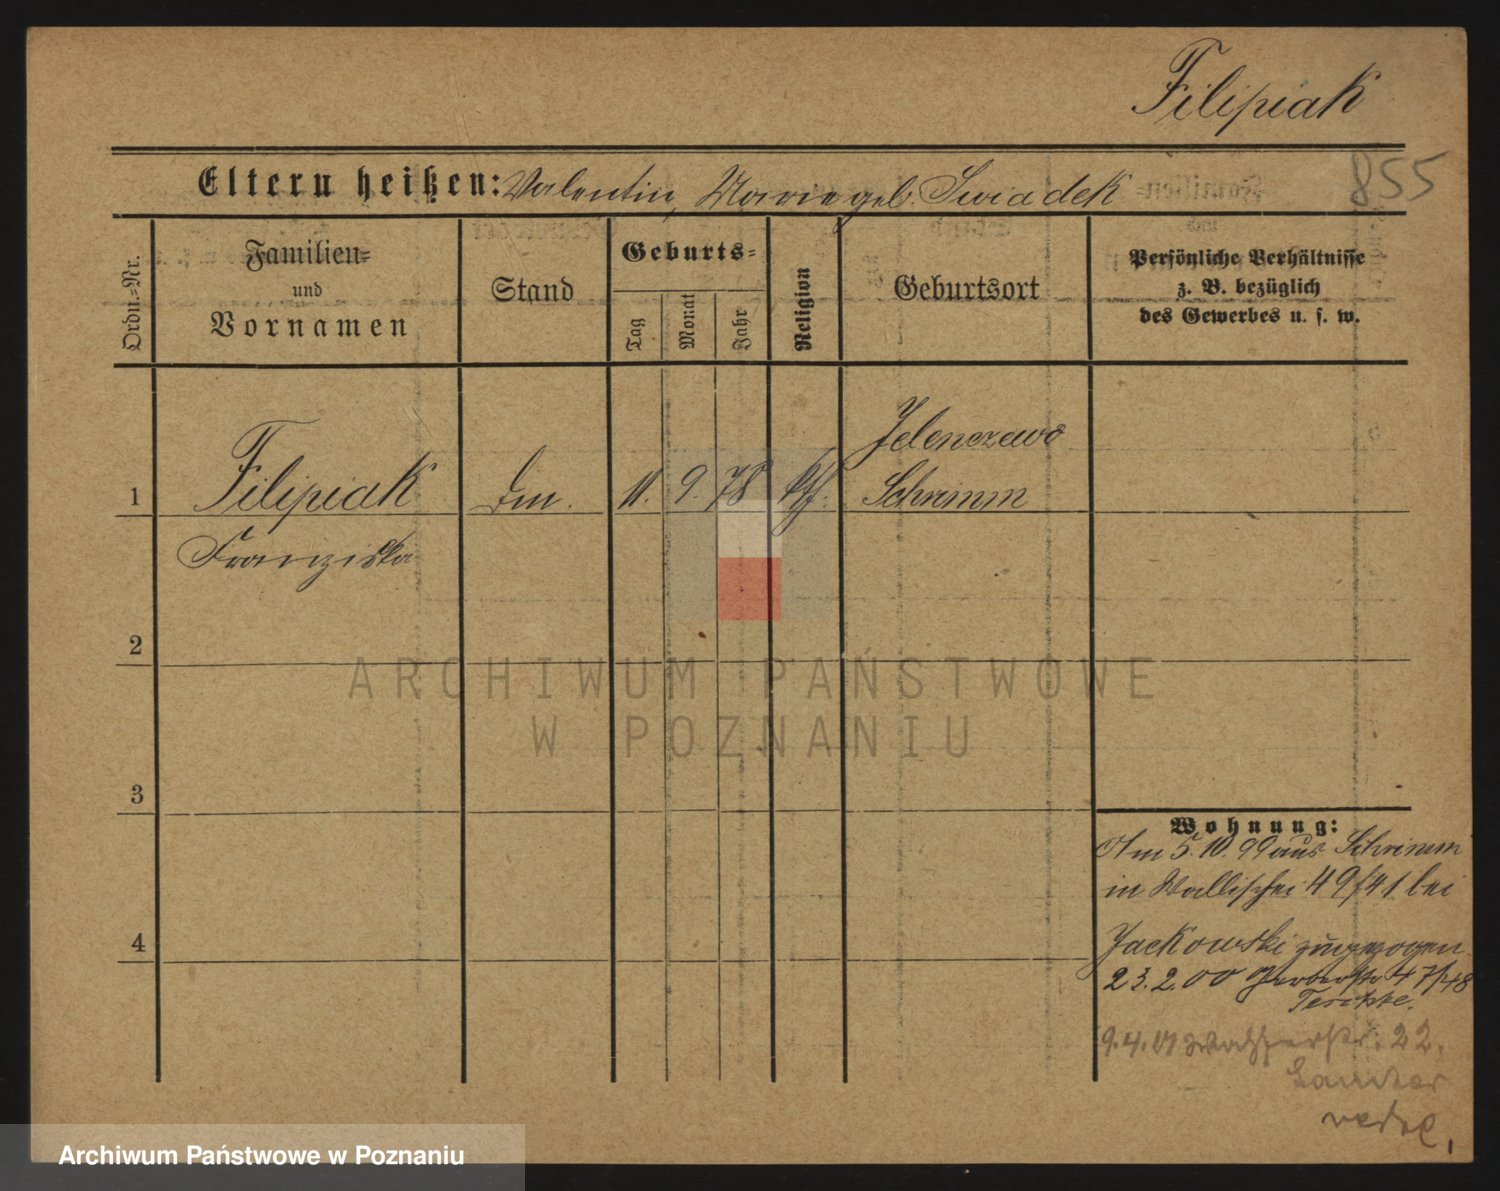 Filipiak
855
Eltern heißen: Valentin, Marie geb. Swiadek
Ordn.-Nr.
Familien-
und
Vornamen
Stand
Geburts-
Tag
Monat
Jahr
Religion
Geburtsort
Persönliche Verhältnisse
z. B. bezüglich
des Gewerbes u. s. w.
1
Filipiak
11. 9. 78
Jelenczewo
Schrimm
Franziska
2
3
4
Wohnung:
Am 5. 10. 99 aus Schrimm
in Wallischei 49/41 bei
Jackowski zugezogen
23. 2. 00 Gerberstr 47/48
22.
ARCHIWUM PAŃSTWOWE
W POZNANIU
Archiwum Państwowe w Poznaniu